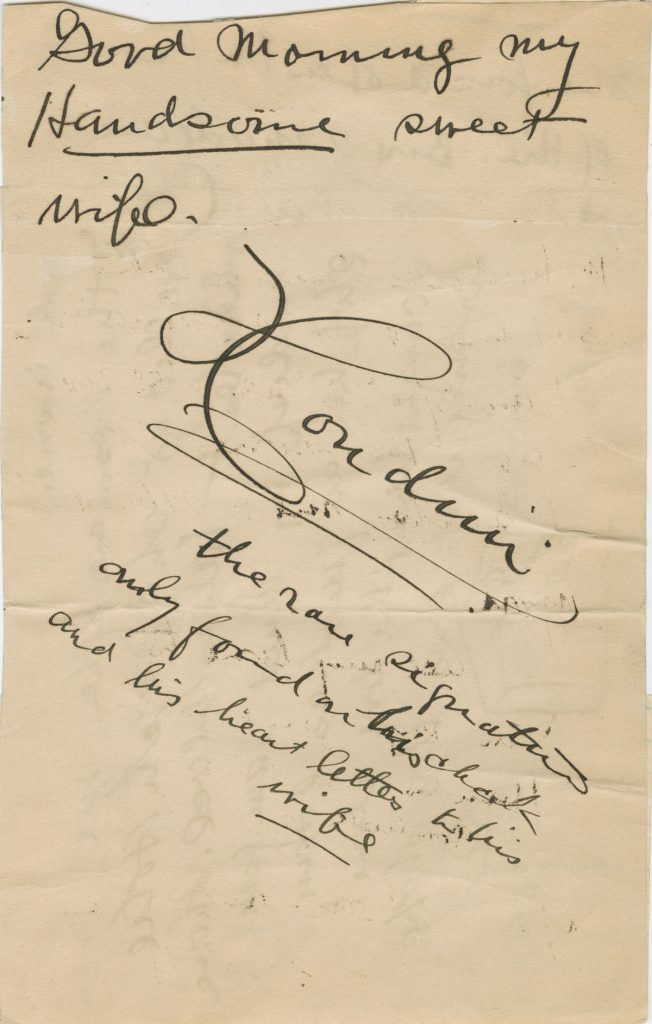 Good Morning my
Handsome sweet
wife.
Houdini
the rare signature
only found on his checks
and his heart letters to his
wife